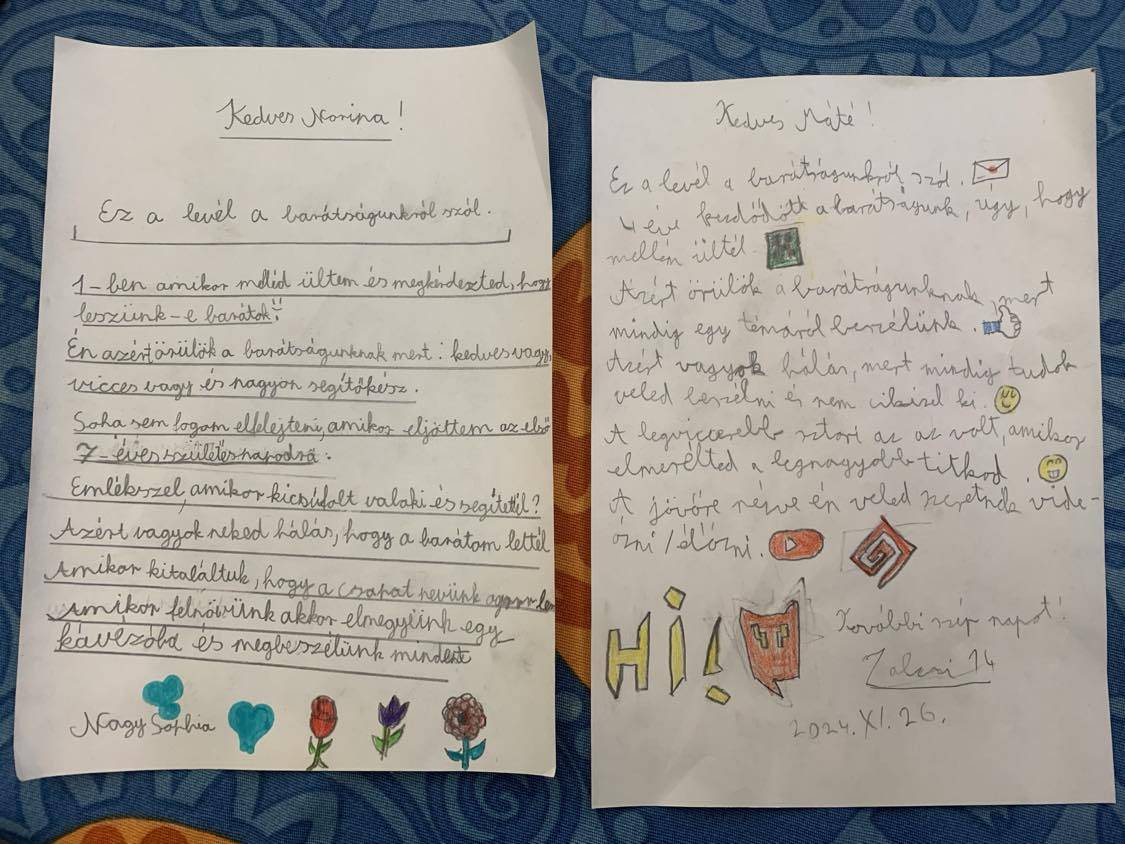 Kedves Norina!
Ez a levél a barátságunkról szól.
1-ben amikor melléd ültem és megkérdezted, hogy
leszünk-e barátok!
Én azért örülök a barátságunknak mert: kedves vagy,
vicces vagy és nagyon segítőkész.
Soha sem fogom elfelejteni, amikor eljöttem az első
7-éves születésnapodra.
Emlékszel, amikor kicsúfolt valaki és segítettél?
Azért vagyok neked hálás, hogy a barátom lettél
Amikor kitaláltuk, hogy a csapat nevünk
Amikor felnövünk akkor elmegyünk egy
kávézóba és megbeszélünk mindent
Nagy Sophia
Kedves Máté!
Ez a levél a barátságunkról szól.
4 éve kezdődött a barátságunk, úgy, hogy
mellém ültél
Azért örülök a barátságunknak, mert
mindig egy témáról beszélünk.
Azért vagyok hálás, mert mindig tudok
veled beszélni és nem cikizel ki.
A legviccesebb sztori az az volt, amikor
elmesélted a legnagyobb titkod.
A jövőre nézve én veled szeretnék vide-
ózni/élőzni.
Hi!
További szép napot!
2024.XI.26.